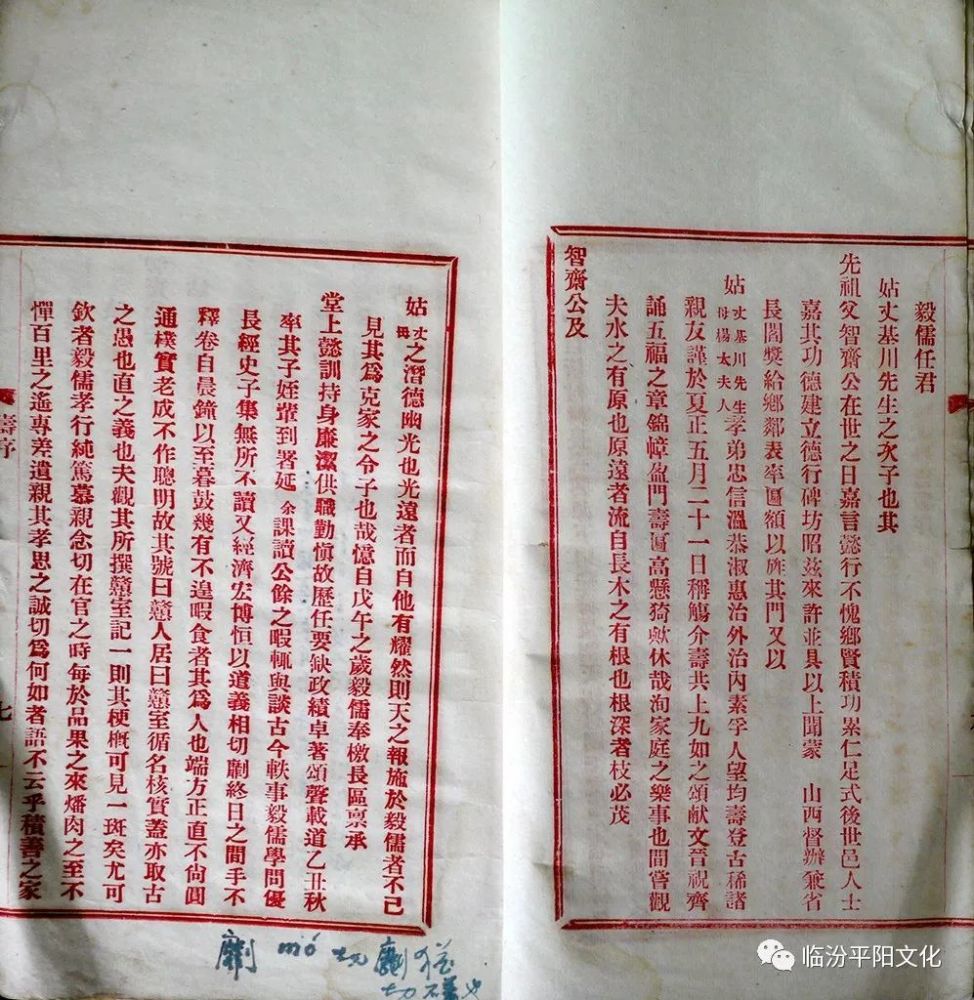 毅儒任君
姑丈基川先生之次子也其
先祖父智齋公在世之日嘉言懿行不愧鄉賢積功累仁足式後世邑人士
嘉其功德建立德行碑坊昭茲來許並具以上聞蒙 山西督辦兼省
長閻獎給鄉鄰表率匾額以旌其門又以
姑丈基川先生母楊太夫人孝弟忠信溫恭淑惠治外治內素孚人望均壽登古稀諸
親友謹於夏正五月二十一日稱觴介壽共上九如之頌献文晉祝齊
誦五福之章錦幛盈門壽匾高懸猗歟休哉洵家庭之樂事也間嘗觀
夫水之有原也原遠者流自長木之有根也根深者枝必茂
智齋公及
姑丈母之潛德幽光也光遠者而自他有耀然則天之報施於毅儒者不已
見其為克家之令子也哉憶自戊午之歲毅儒奉檄長區禀承
堂上懿訓持身廉潔供職勤慎故歷任要缺政績卓著頌聲載道乙丑秋
率其子姪輩到署延余課讀公餘之暇輒與談古今軼事毅儒學問優
長經史子集無所不讀又經濟宏博恒以道義相切劘終日之間手不
釋卷自晨鐘以至暮鼓幾有不遑暇食者其為人也端方正直不尙圓
通樸實老成不作聰明故其號曰戇人居曰戇室循名核實蓋亦取古
之愚也直之義也夫觀其所撰戇室記一則其梗概可見一斑矣尤可
欽者毅儒孝行純篤慕親念切在官之時每於品果之來燔肉之至不
憚百里之遙專差遺親其孝思之誠切為何如者語不云乎積善之家
壽序
七
劘 mó
切磋
临汾平阳文化